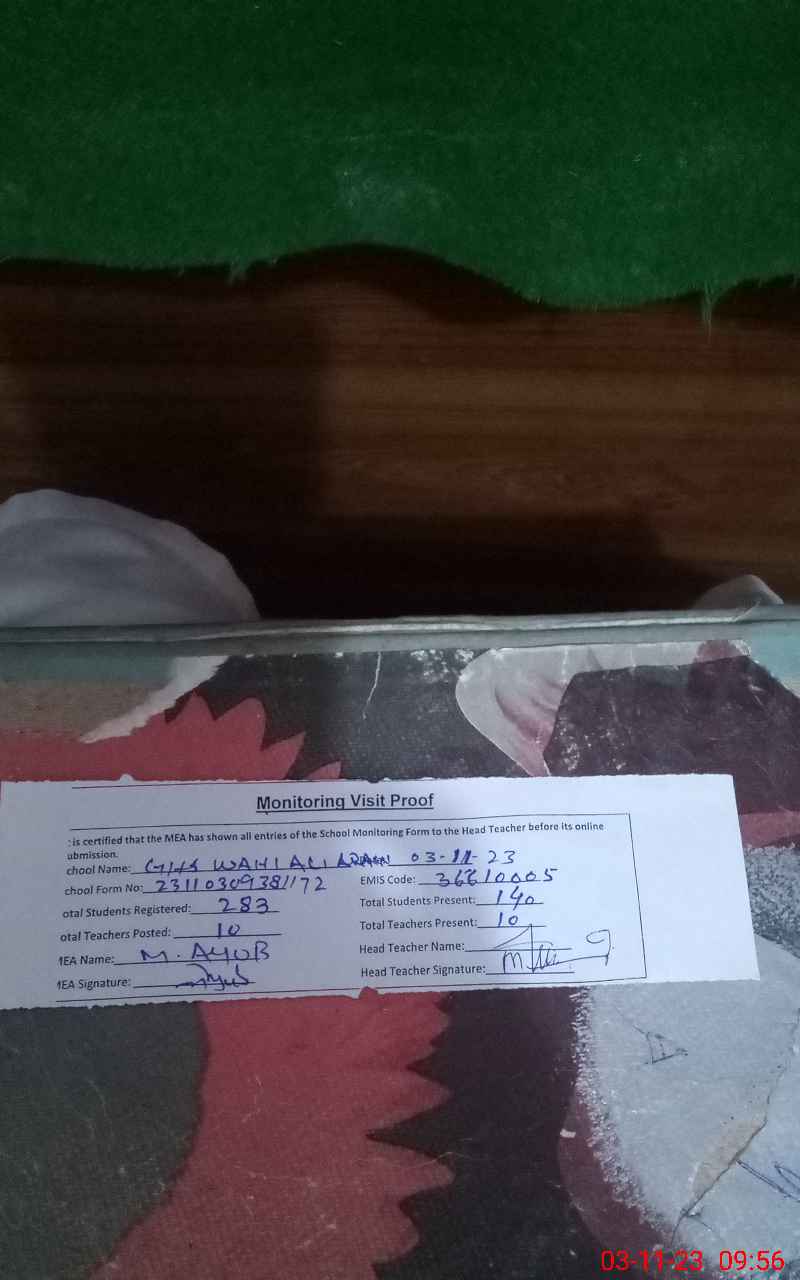 Monitoring Visit Proof
: is certified that the MEA has shown all entries of the School Monitoring Form to the Head Teacher before its online
ubmission.
chool Name: GHS WAHI ALI ARAEN 03-11-23
chool Form No: 23110309381172 EMIS Code: 36610005
otal Students Registered: 283 Total Students Present: 140
otal Teachers Posted: 10 Total Teachers Present: 10
MEA Name: M. AYUB Head Teacher Name:
MEA Signature: Ayub Head Teacher Signature:
03-11-23 09:56